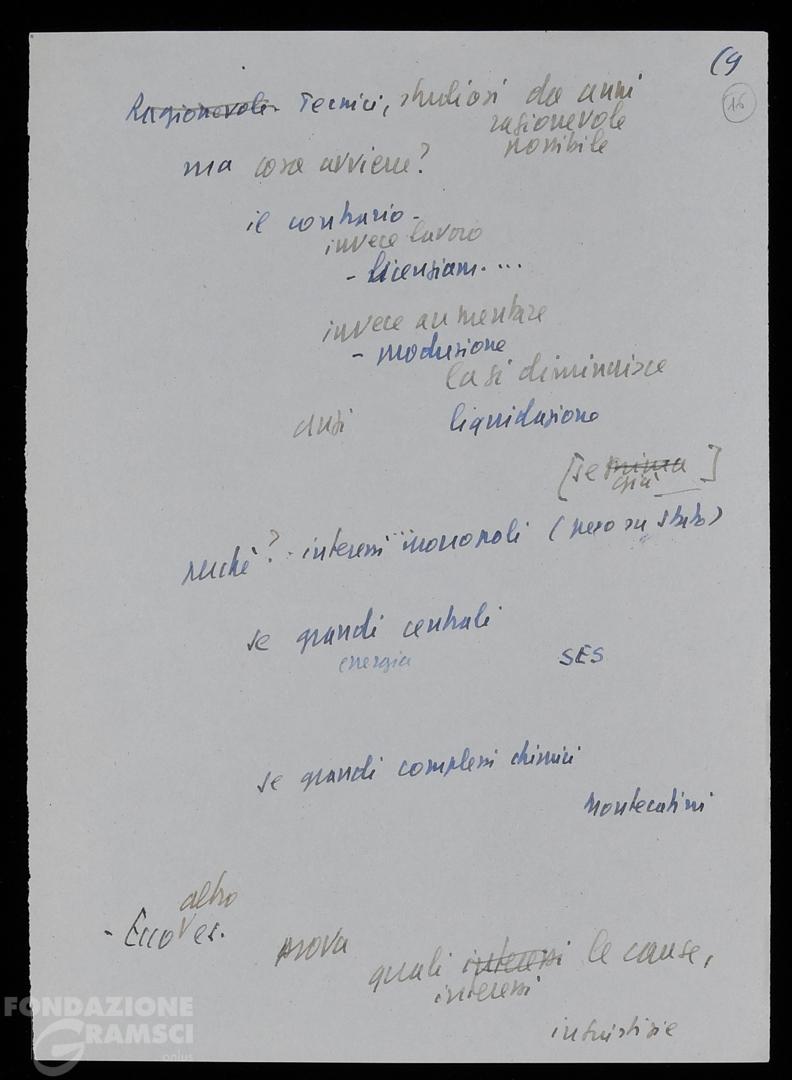 (9
16
Ragionevole. Tecnici, studiosi da anni
ragionevole
possibile
ma cosa avviene?
il contrario.
invece lavoro
- licenziam. ...
invece aumentare
- produzione
la si diminuisce
anzi liquidazione
[se prima]
già
perché? - interessi monopoli (peso su Stato)
se grandi centrali
energia SES
se grandi complessi chimici
Montecatini
altro
- Ecco es.
prova
quali interessi le cause,
interessi
FONDAZIONE
GRAMSCI
onlus